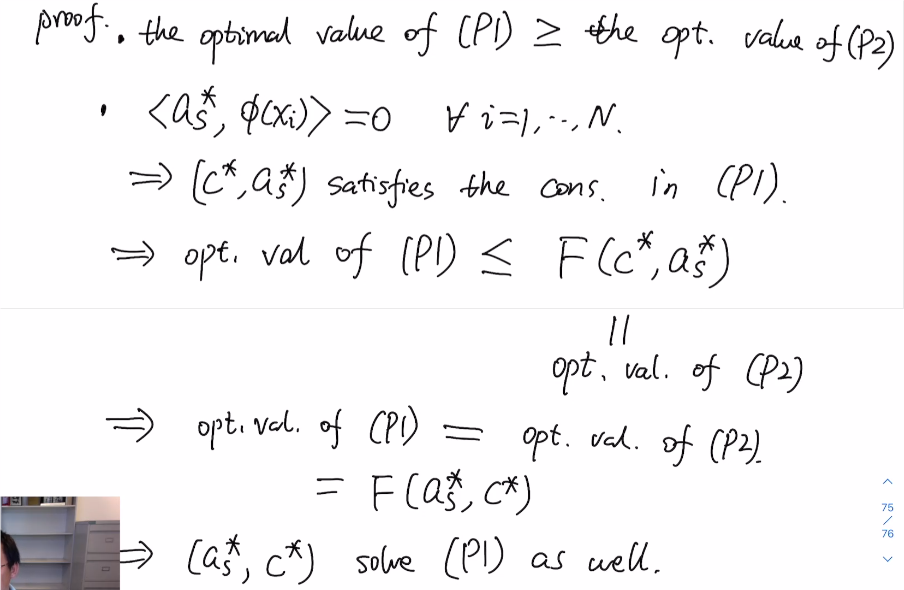 proof. • the optimal value of (P1) ≥ the opt. value of (P2)
• <a_s^*, ϕ(x_i)> = 0 ∀ i=1,⋯, N.
⇒ (c^*, a_s^*) satisfies the cons. in (P1).
⇒ opt. val of (P1) ≤ F(c^*, a_s^*)
||
opt. val. of (P2)
⇒ opt. val. of (P1) = opt. val. of (P2).
= F(a_s^*, c^*)
⇒ (a_s^*, c^*) solve (P1) as well.
75
/
76